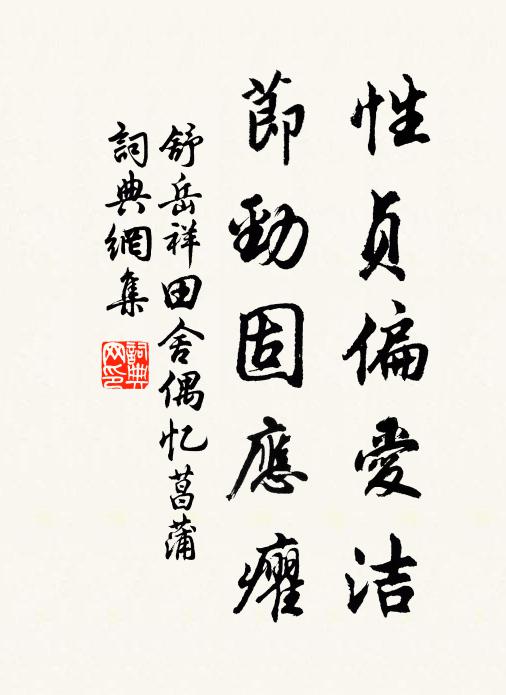 性貞偏愛洁
節勁固應癯
舒岳祥田舍偶忆菖蒲
詞典網集
詞典網印